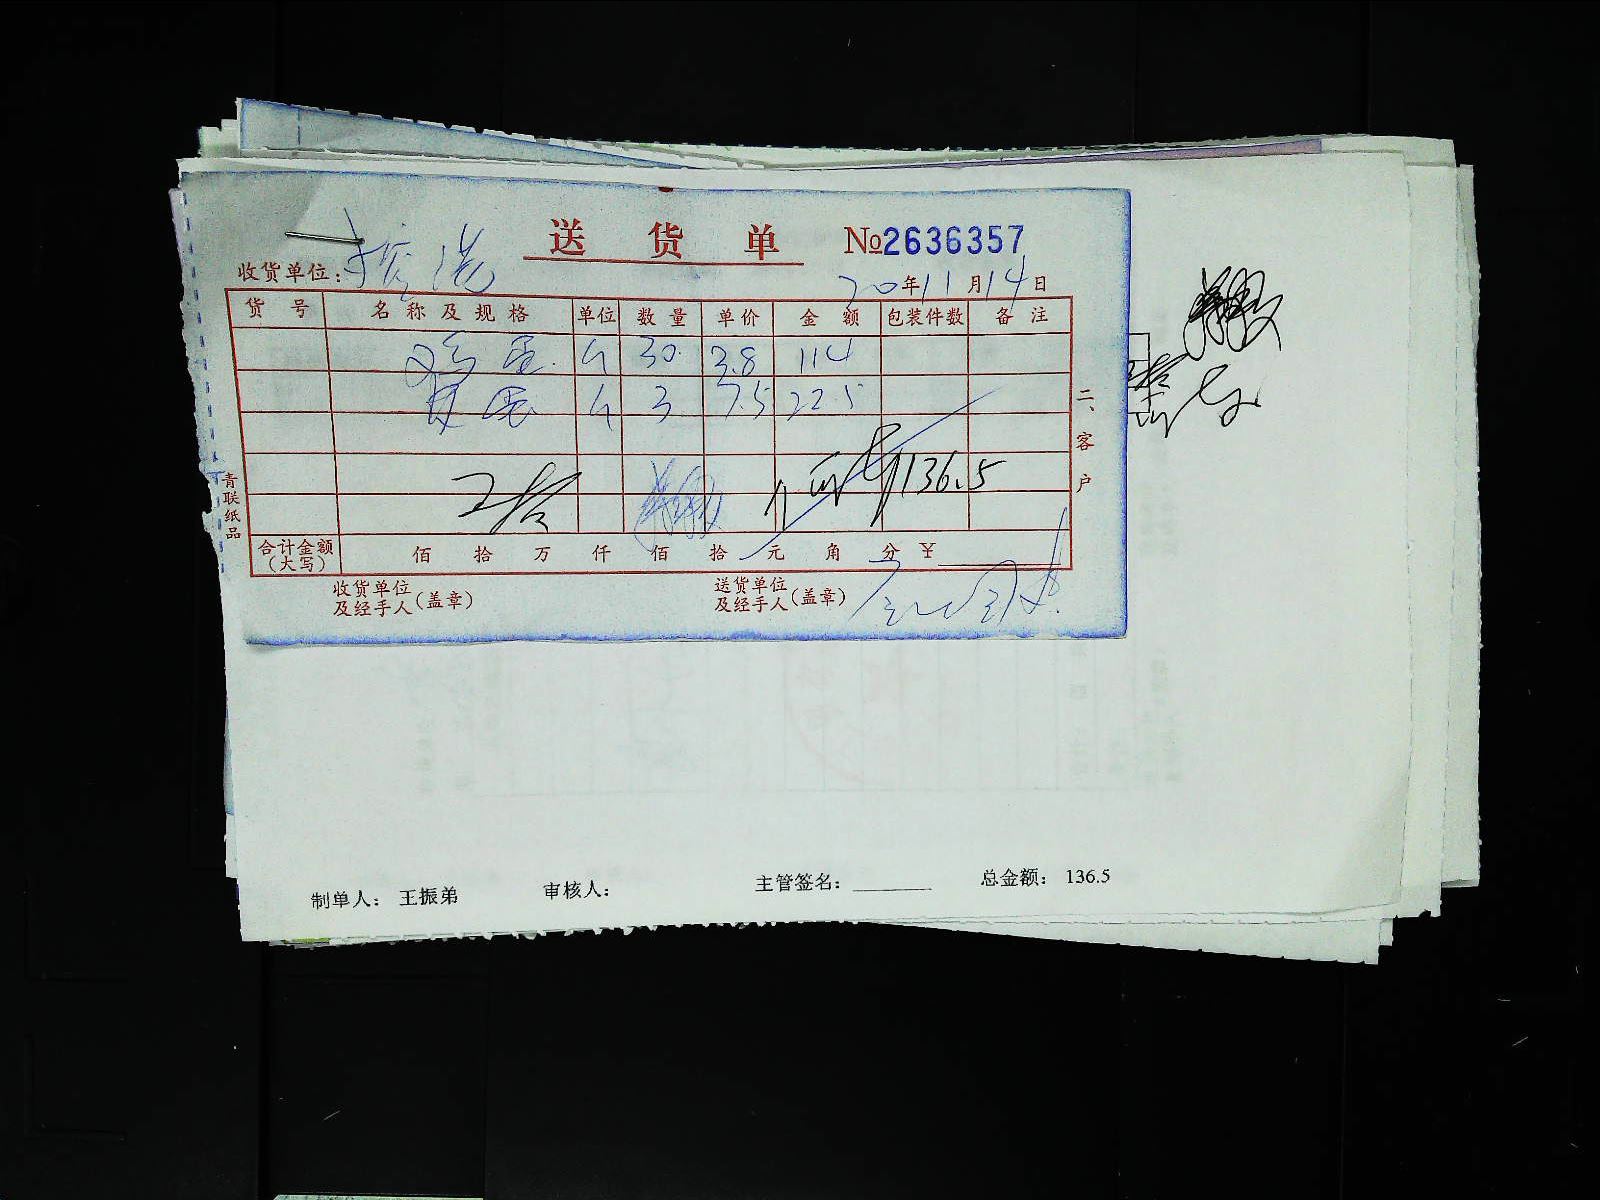 送货单 №2636357
收货单位:振浩 20年11月14日
货号 名称及规格 单位 数量 单价 金额 包装件数 备注
鸡蛋 斤 30 3.8 114
皮蛋 斤 3 7.5 22.5
136.5
合计金额(大写) 佰 拾 万 仟 佰 拾 元 角 分 ¥
收货单位及经手人(盖章) 送货单位及经手人(盖章)
二、客户
青联纸品
制单人: 王振弟 审核人: 主管签名: 总金额: 136.5